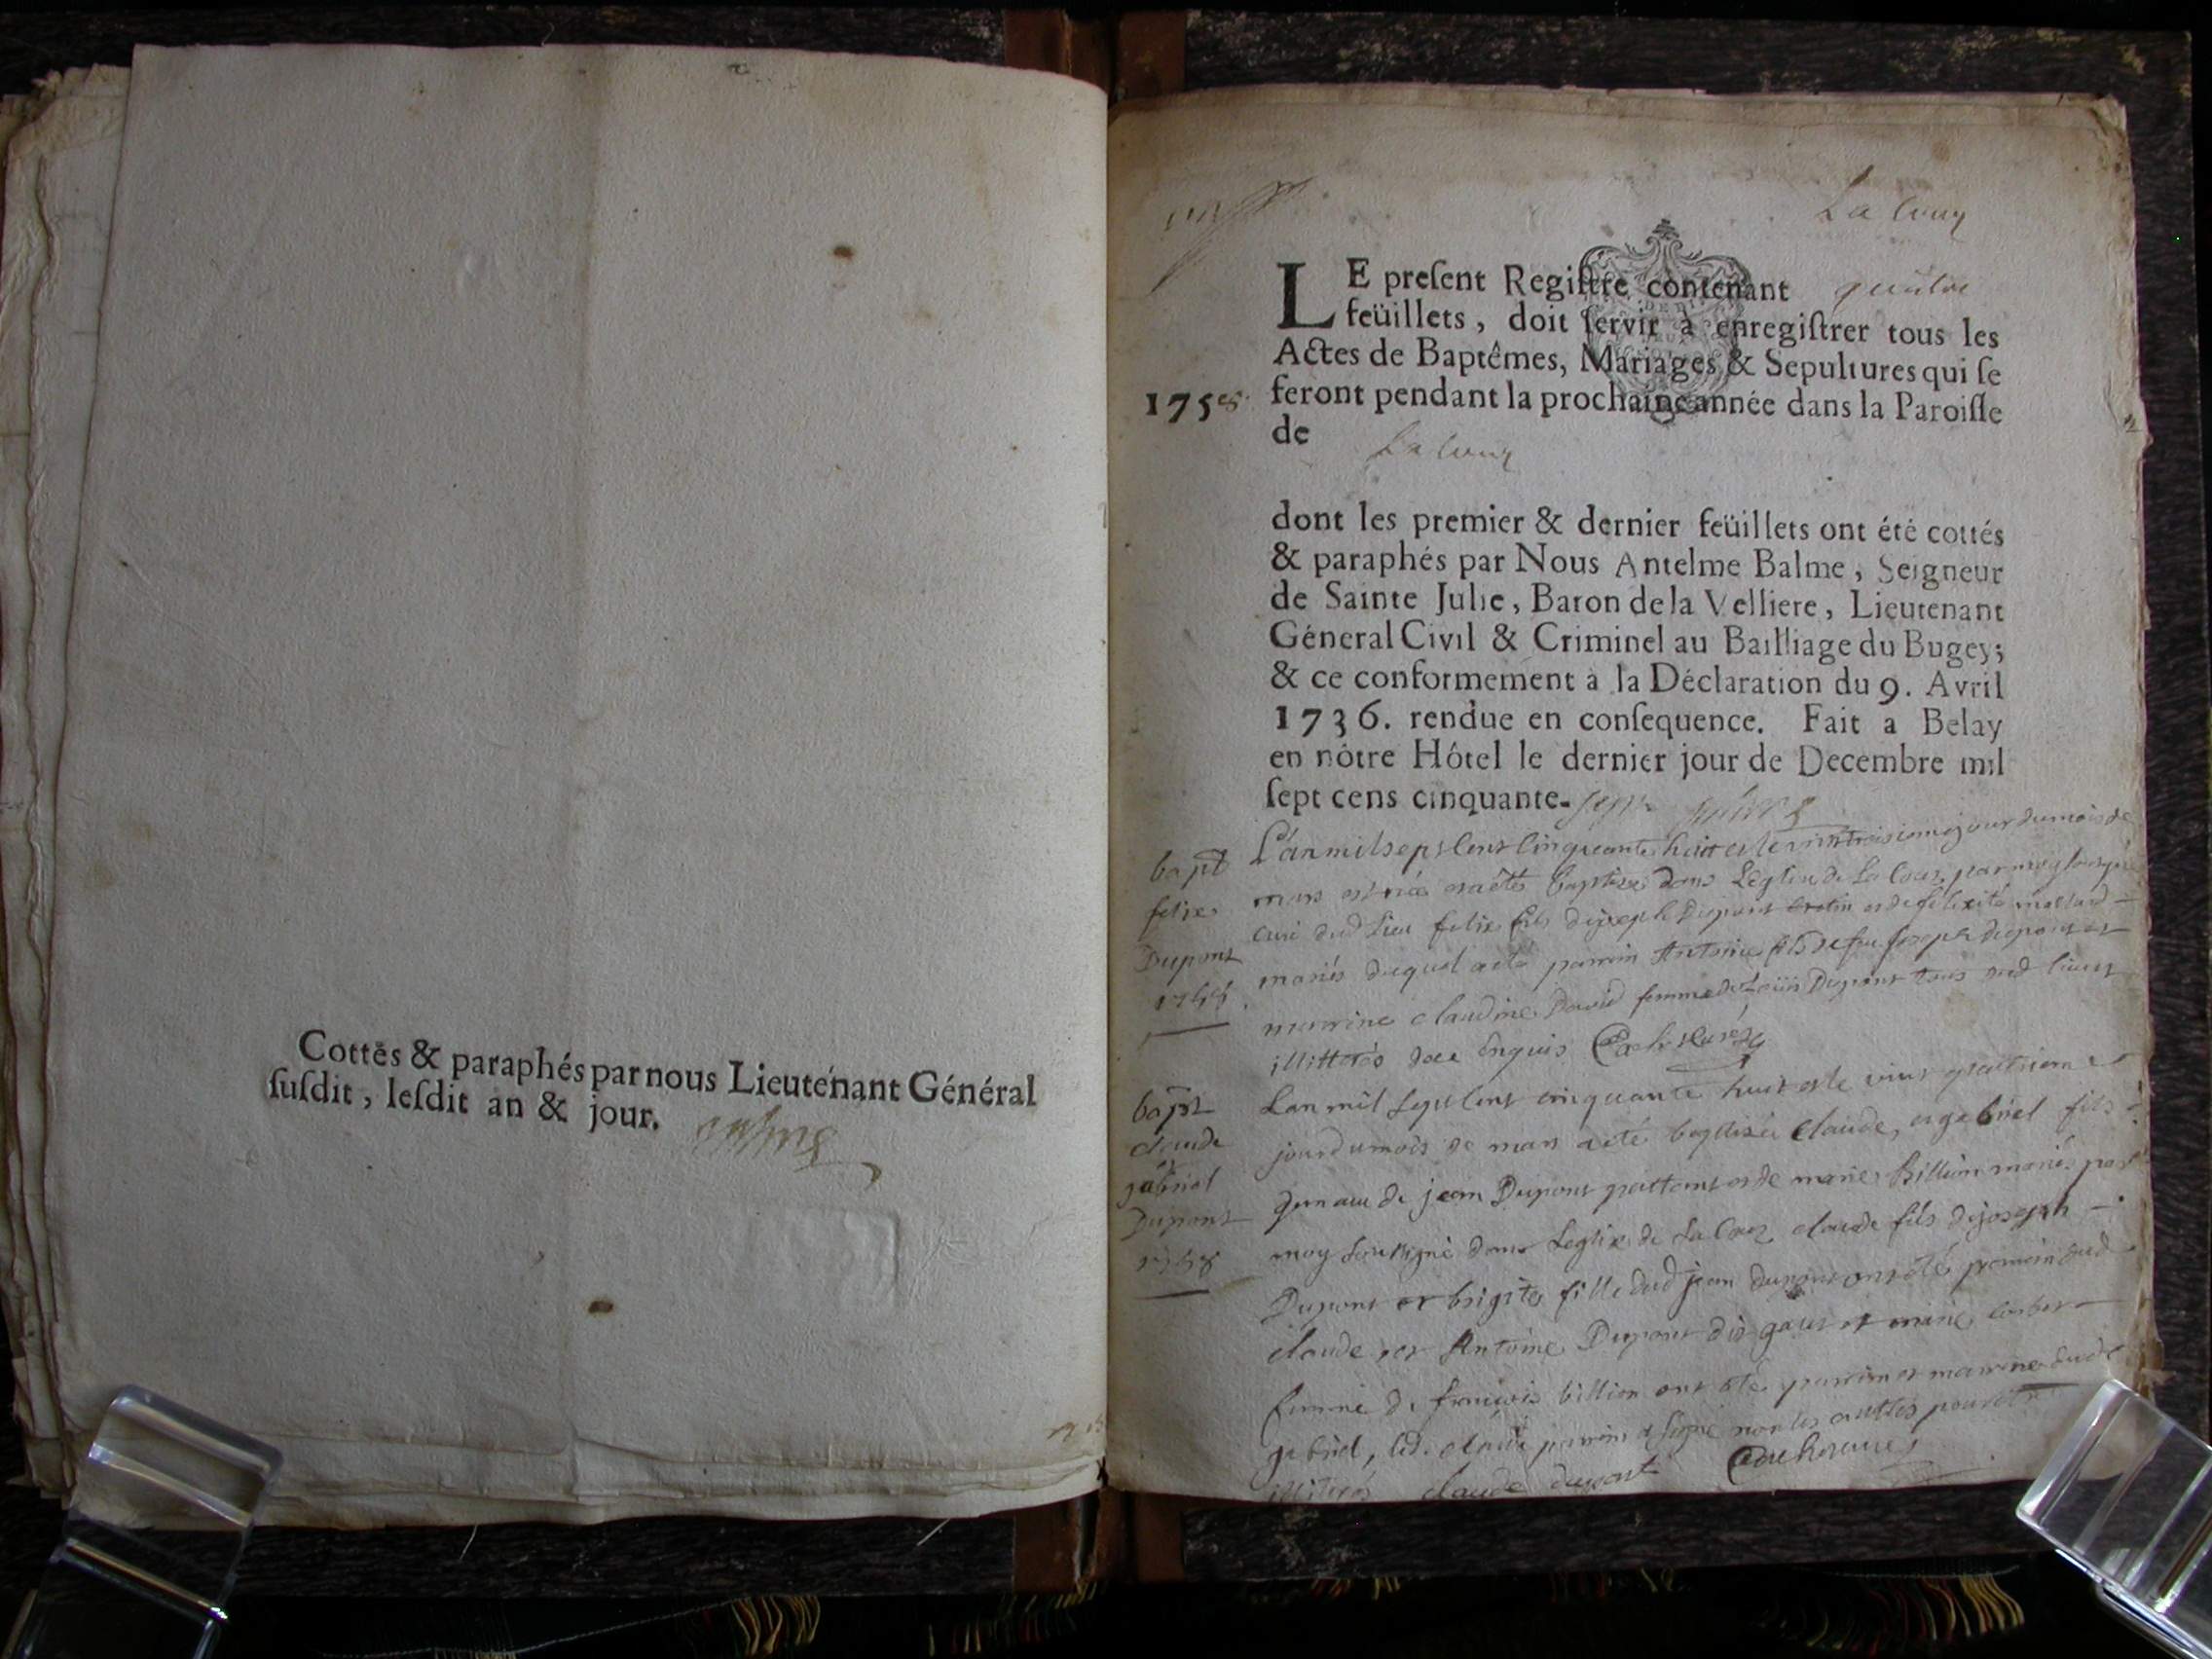 Cottés & paraphés par nous Lieutenant Général
ſuſdit, leſdit an & jour.
balme
La Coux
LE preſent Regiſtre contenant quatre
feüillets, doit ſervir à enregiſtrer tous les
Actes de Baptêmes, Mariages & Sepultures qui ſe
1758 feront pendant la prochaine année dans la Paroiſſe
de La Coux
dont les premier & dernier feüillets ont été cottés
& paraphés par Nous Antelme Balme, Seigneur
de Sainte Julie, Baron de la Velliere, Lieutenant
Géneral Civil & Criminel au Bailliage du Bugey;
& ce conformement à la Déclaration du 9. Avril
1736. rendue en conſequence. Fait a Belay
en nôtre Hôtel le dernier jour de Decembre mil
ſept cens cinquante- sept balme
bapt
felix
Dupont
1758
L'an mil sept cent cinquante huit et le vint troisieme jour du mois de
mars est né et a été baptisé dans L'eglise de La Coux par moy soussigné
curé dud Lieu felix fils de joseph Dupont et de felicité
mariés duquel a été parrain Antoine fils de feu joseph dupont et
marrine claudine David femme de Loüis Dupont tous dud lieu et
illitterés de ce enquis
bapt
claude
et
gabriel
Dupont
1758
L'an mil sept cent cinquante huit et le vint quatrieme
jour du mois de mars a été baptisés claude, et gabriel fils
jumaux de jean Dupont et de marie Billion mariés par
moy soussigné dans Leglise de La Coux claude fils de joseph
Dupont et brigite fille dud jean dupont ont été parrain dud
claude, et Antoine Dupont dit et marie
femme de françois billion ont été parrain et marrine dud
gabriel, led. claude parrain a signé non les autres pour être
illiterés claude dupont